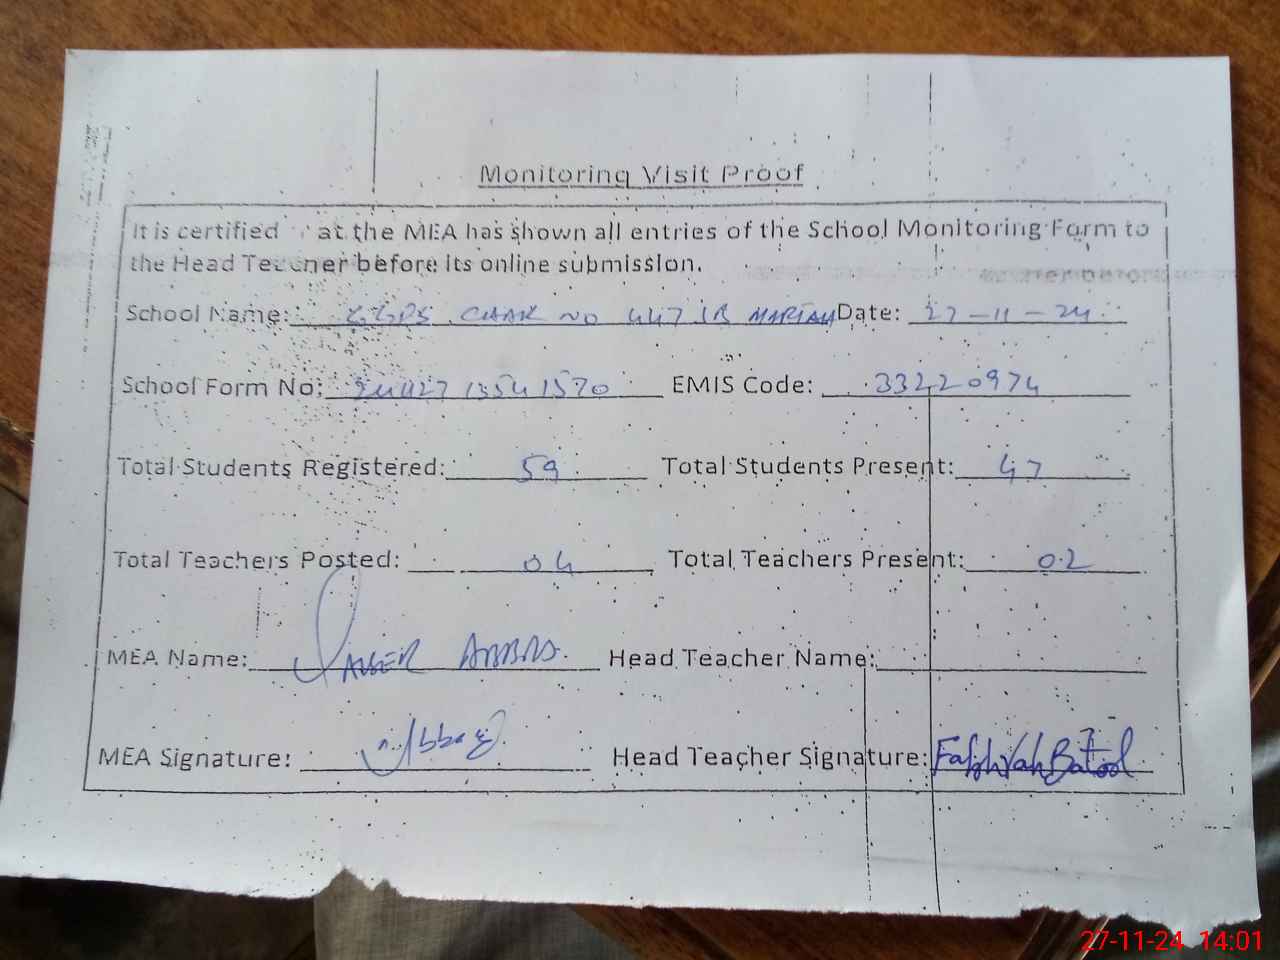 Monitoring Visit Proof
It is certified at the MEA has shown all entries of the School Monitoring Form to
the Head Teacher before its online submission.
School Name: GGPS CHAK NO 447 JB MARIAH Date: 27-11-24
School Form No: EMIS Code: 33220974
Total Students Registered: 59 Total Students Present: 47
Total Teachers Posted: 04 Total Teachers Present: 02
MEA Name: ABBAS Head Teacher Name:
MEA Signature: Abbas Head Teacher Signature: Batool
27-11-24 14:01